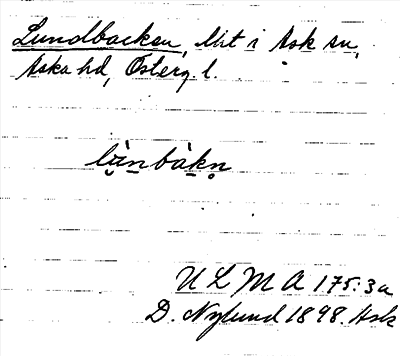 Lundbacken, lht i Ask sn,
Aska hd, Österg. l.
lù̯nbàkn̥
U L M A 175:3a
D. Nylund 1898. Ask